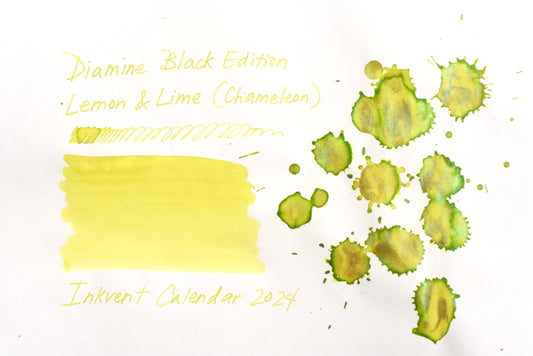 Diamine Black Edition
Lemon & Lime (Chameleon)
Inkvent Calendar 2024